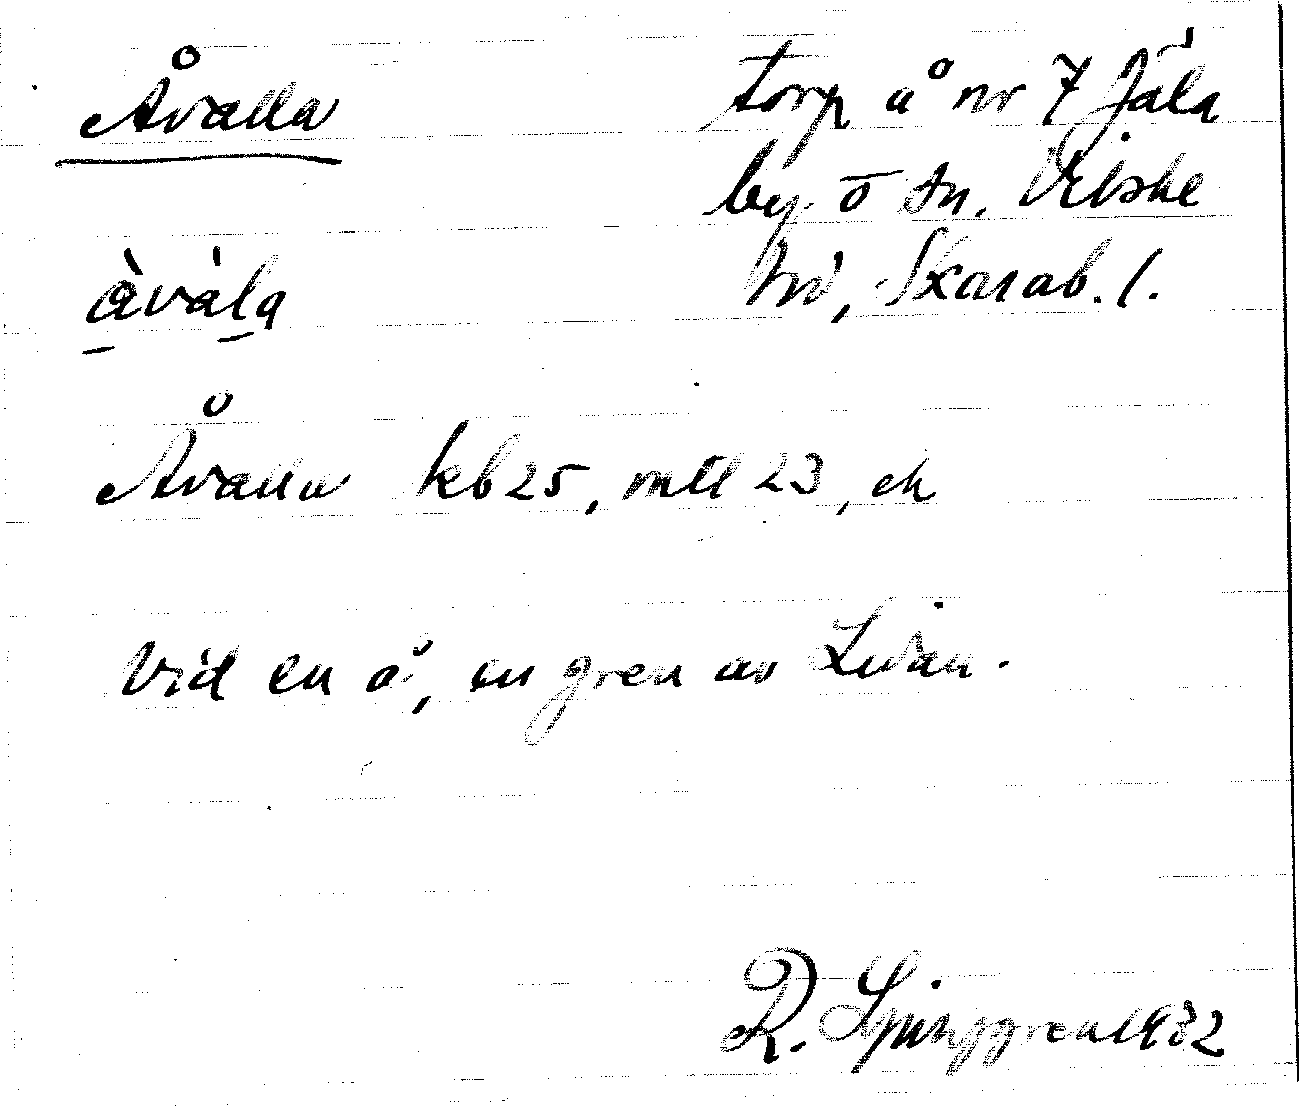 Åvalla
torp å nr 7 Jäla
by o sn. Vilske
hd, Skarab. l.
àvála
Åvalla kb 25, mtl 23, ek
Vid en å, en gren av Lidan.
R. Ljunggren 1932